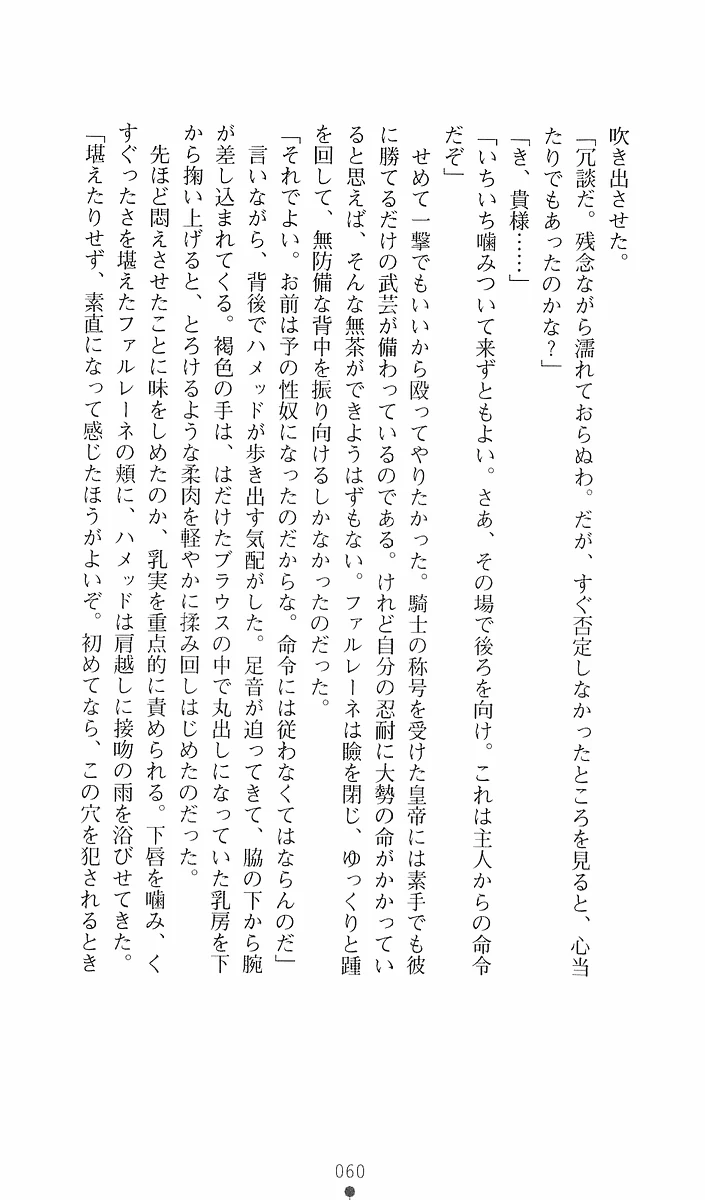 吹き出させた。
「冗談だ。残念ながら濡れておらぬわ。だが、すぐ否定しなかったところを見ると、心当
たりでもあったのかな？」
「き、貴様……」
「いちいち噛みついて来ずともよい。さあ、その場で後ろを向け。これは主人からの命令
だぞ」
せめて一撃でもいいから殴ってやりたかった。騎士の称号を受けた皇帝には素手でも彼
に勝てるだけの武芸が備わっているのである。けれど自分の忍耐に大勢の命がかかってい
ると思えば、そんな無茶ができようはずもない。ファルレーネは瞼を閉じ、ゆっくりと踵
を回して、無防備な背中を振り向けるしかなかったのだった。
「それでよい。お前は予の性奴になったのだからな。命令には従わなくてはならんのだ」
言いながら、背後でハメッドが歩き出す気配がした。足音が迫ってきて、脇の下から腕
が差し込まれてくる。褐色の手は、はだけたブラウスの中で丸出しになっていた乳房を下
から掬い上げると、とろけるような柔肉を軽やかに揉み回しはじめたのだった。
先ほど悶えさせたことに味をしめたのか、乳実を重点的に責められる。下唇を噛み、く
すぐったさを堪えたファルレーネの頬に、ハメッドは肩越しに接吻の雨を浴びせてきた。
「堪えたりせず、素直になって感じたほうがよいぞ。初めてなら、この穴を犯されるとき
060